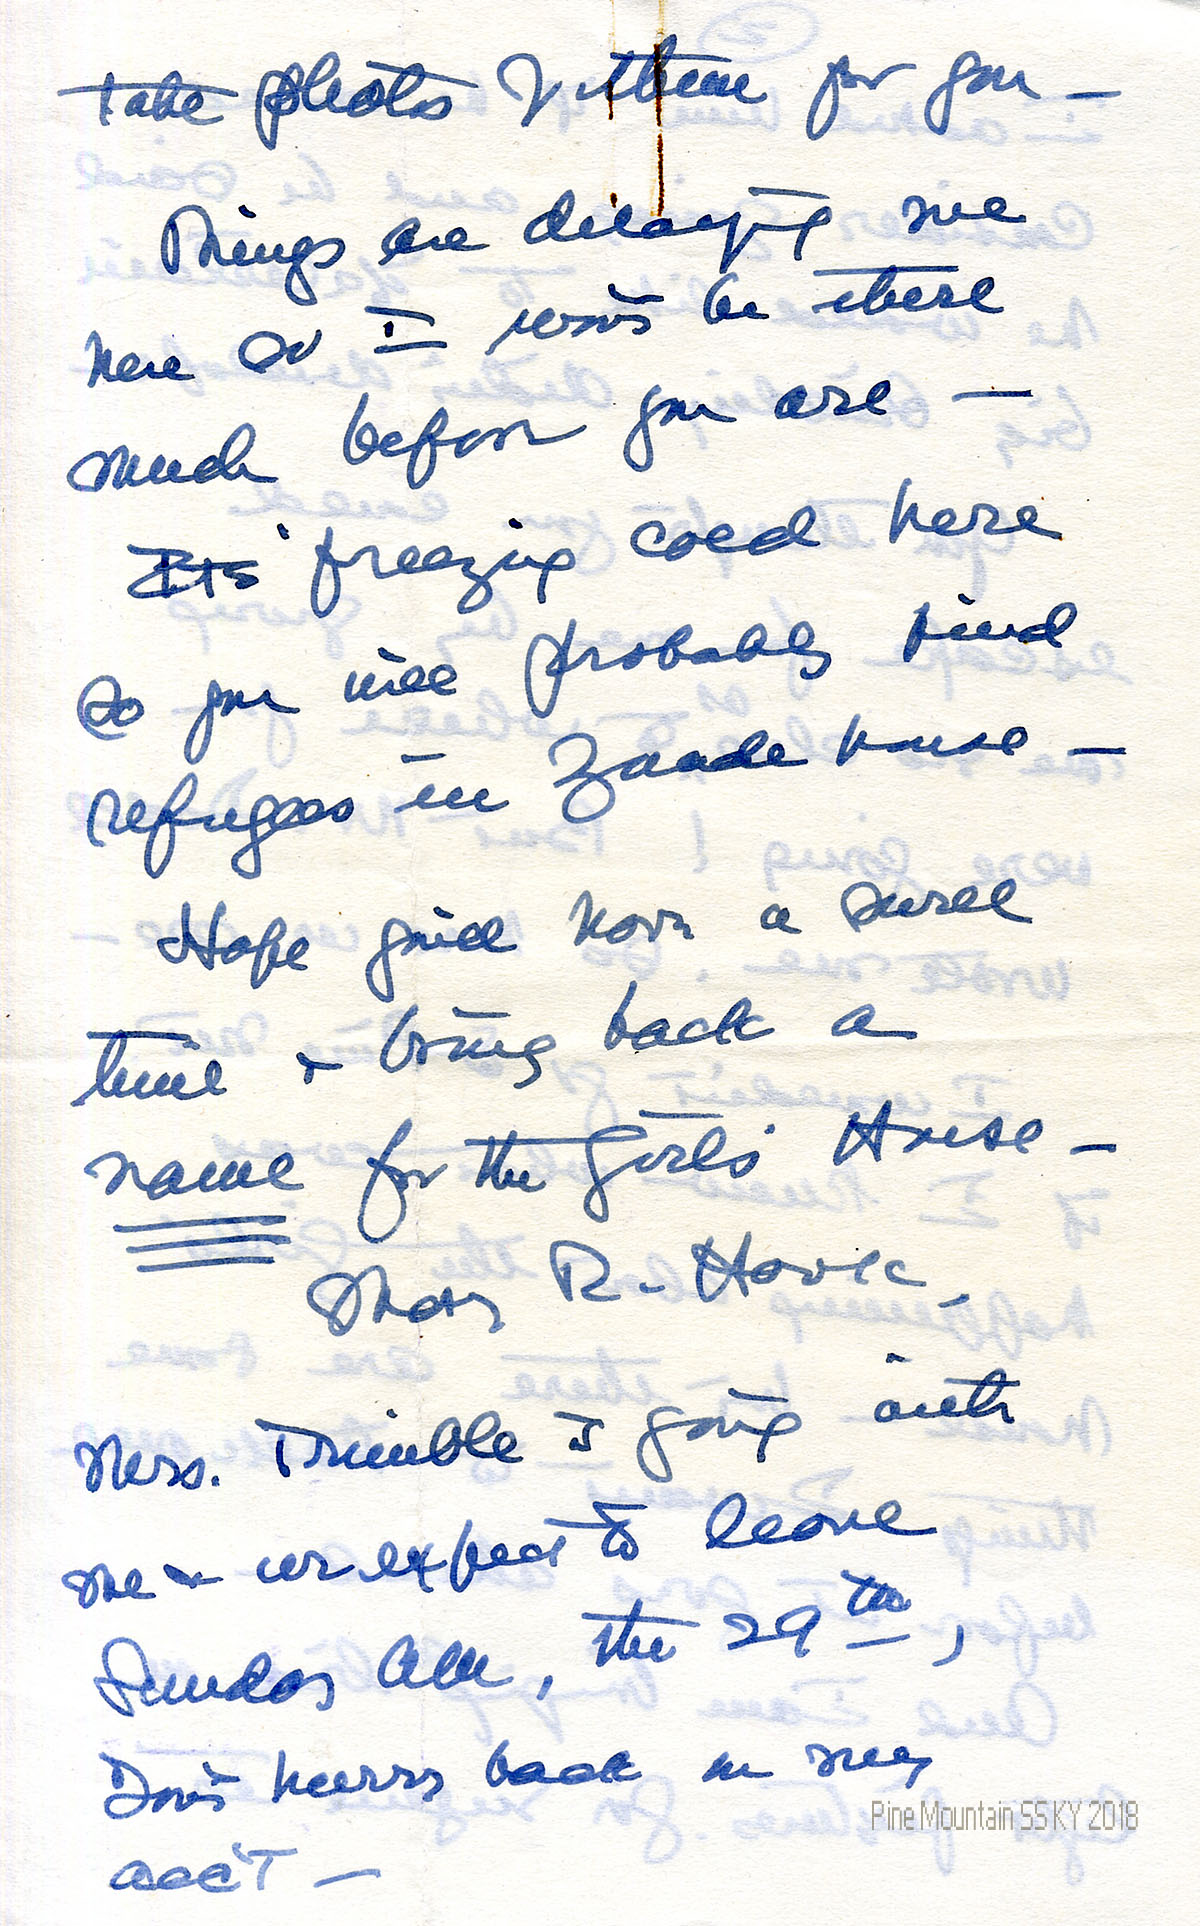 take photos of them for you —
Things are delaying me
here so I won't be there
much before you are —
It's freezing cold here
so you will probably find
refugees in Zaade house —
Hope you'll have a swell
time & bring back a
name for the Girls' House —
Mary R- Hook -
Mrs. Trimble is going with
me & we expect to leave
Sunday AM, the 29th,
Don't hurry back on my
acc't —
Pine Mountain SS KY 2018